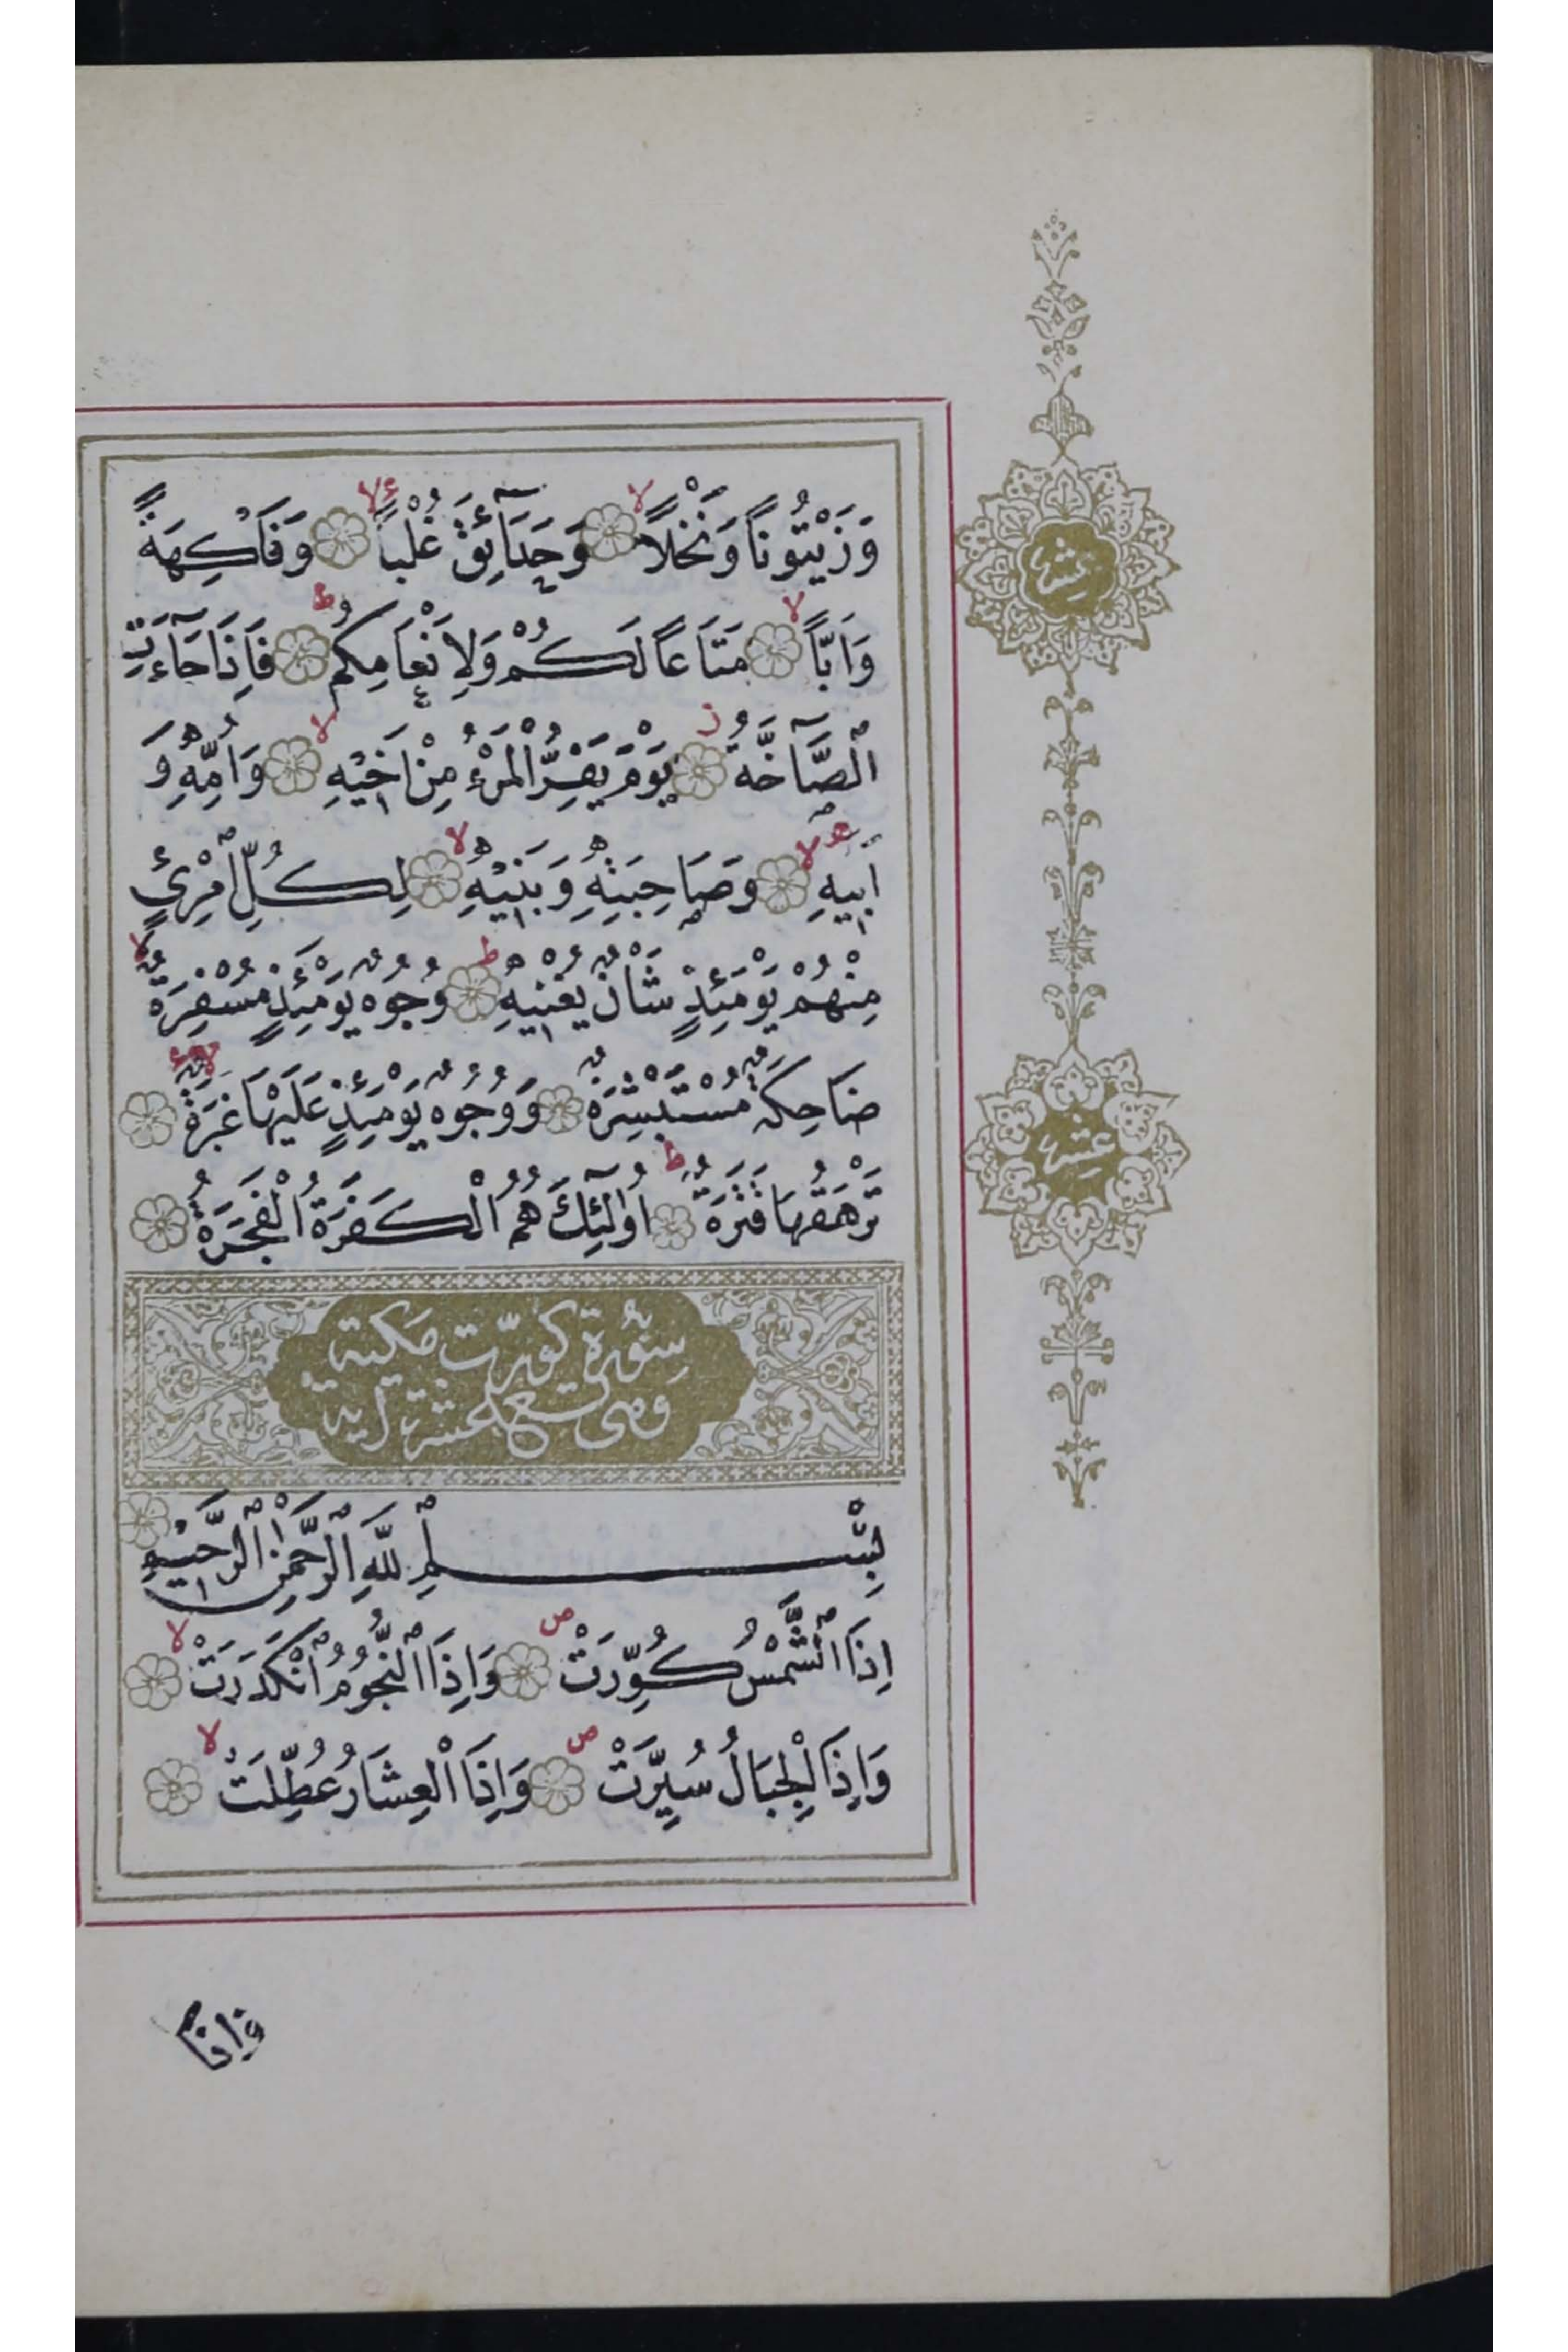 وَزَيْتُونًا وَنَخْلًا لا وَحَدَآئِقَ غُلْبًا لا وَفَاكِهَةً
وَاَبًّا لا مَتَاعًا لَكُمْ وَلِاَنْعَامِكُمْ ط فَاِذَا جَآءَتِ
الصَّآخَّةُ ز يَوْمَ يَفِرُّ الْمَرْءُ مِنْ اَخِيهِ لا وَاُمِّهِ وَ
اَبِيهِ لا وَصَاحِبَتِهِ وَبَنِيهِ لا لِكُلِّ امْرِئٍ
مِنْهُمْ يَوْمَئِذٍ شَاْنٌ يُغْنِيهِ ط وُجُوهٌ يَوْمَئِذٍ مُسْفِرَةٌ لا
ضَاحِكَةٌ مُسْتَبْشِرَةٌ وَوُجُوهٌ يَوْمَئِذٍ عَلَيْهَا غَبَرَةٌ لا
تَرْهَقُهَا قَتَرَةٌ ط اُولٰئِكَ هُمُ الْكَفَرَةُ الْفَجَرَةُ
سورة كورت مكية
وهى تسع عشرة اية
بِسْمِ اللّٰهِ الرَّحْمٰنِ الرَّحِيمِ
اِذَا الشَّمْسُ كُوِّرَتْ ص وَاِذَا النُّجُومُ انْكَدَرَتْ لا
وَاِذَا الْجِبَالُ سُيِّرَتْ ص وَاِذَا الْعِشَارُ عُطِّلَتْ لا
واذا
عشر
عشر